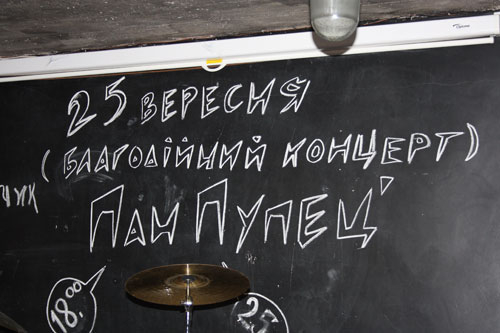 25 ВЕРЕСНЯ
(БЛАГОДІЙНИЙ КОНЦЕРТ)
ЧИК
ПАН ПУПЕЦ'
18.00
25